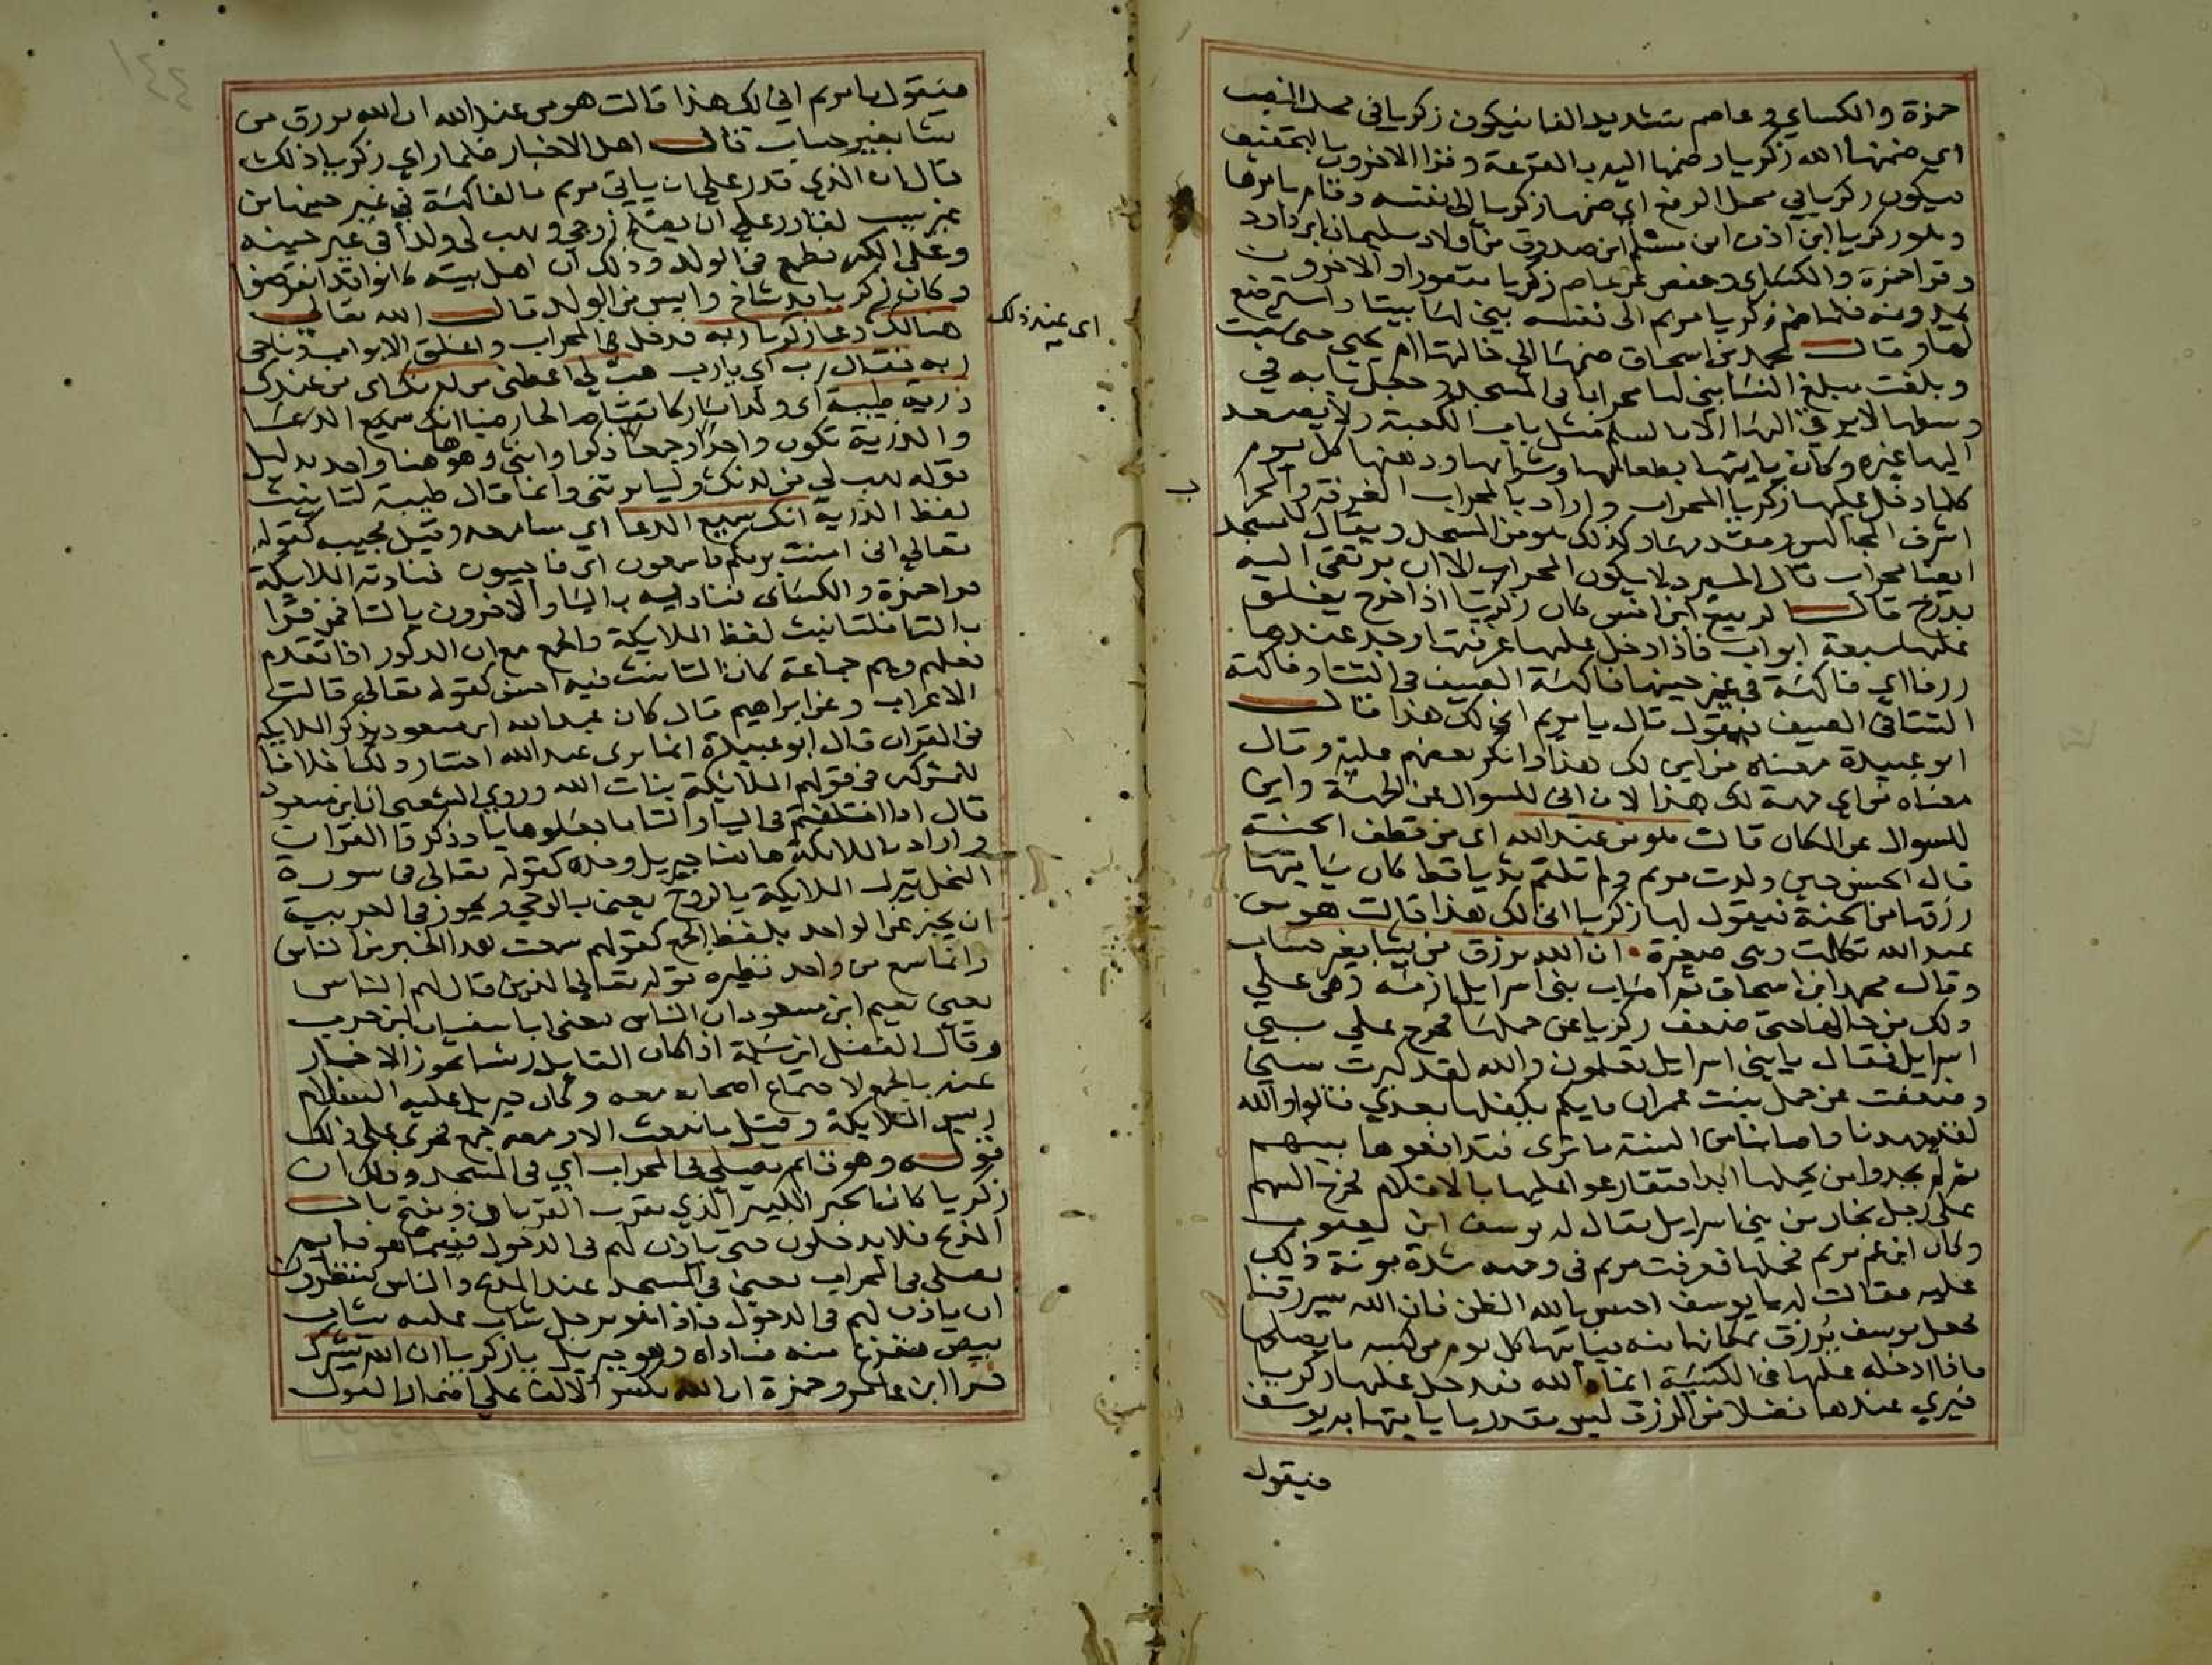 حمزة والكساي وعاصم بتشديد الفا فيكون زكريا في محل النصب
اي ضمنها الله زكريا وضمها اليه بالقرعة وقرا الاخرون بالتخفيف
فيكون زكريا في محل الرفع اي ضمها زكريا الى نفسه وقام بامرها
وهو زكريا ابن اذن ابن مسلم ابن صدوق من اولاد سليمان ابن داود
وقرا حمزة والكساي وحفص عن عاصم زكريا مقصورا والاخرون
يمدونه فلما ضم زكريا مريم الى نفسه بنى لها بيتا واسترضع
لها وقال محمد بن اسحاق ضمها الى خالتها ام يحيى حتى شبت
وبلغت مبلغ النسا بنى لها محرابا في المسجد وجعل بابه في
وسطها لا يرقى اليها الا بالسلم مثل باب الكعبة ولا يصعد
اليها غيره وكان ياتيها بطعامها وشرابها ودهنها كل يوم
كلما دخل عليها زكريا المحراب واراد بالمحراب الغرفة والمحراب
اشرف المجالس ومقدمها وكذلك هو من المسجد ويقال للمسجد
ايضا محراب قال المبرد لا يكون المحراب الا ان يرتقى اليه
بدرج قال الربيع ابن انس كان زكريا اذا خرج يغلق
عليها سبعة ابواب فاذا دخل عليها غرفتها وجد عندها
رزقا اي فاكهة في غير حينها فاكهة الصيف في الشتا وفاكهة
الشتا في الصيف فيقول قال يا مريم انى لك هذا قال
ابو عبيدة معناه من اين لك هذا وانكر بعضهم عليه وقال
معناه من اي جهة لك هذا لان انى للسوال عن الجهة واين
للسوال عن المكان قالت هو من عند الله اي من قطف الجنة
قال الحسن حين ولدت مريم ولم تلتقم ثديا قط كان ياتيها
رزقها من الجنة فيقول لها زكريا انى لك هذا قالت هو من
عند الله تكلمت وهي صغيرة ان الله يرزق من يشا بغير حساب
وقال محمد ابن اسحاق ثم اصاب بني اسرايل ازمة وهي على
ذلك من حالها حتى ضعف زكريا عن حملها فخرج على بني
اسرايل فقال يا بني اسرايل تعلمون والله لقد كبرت سني
وضعفت عن حمل بنت عمران فايكم يكفلها بعدي فقالوا والله
لقد جهدنا واصابنا من السنة ما ترى فتدافعوها بينهم
ثم لم يجدوا من يحملها ابدا فتقارعوا عليها بالاقلام فخرج السهم
على رجل نجار من بني اسرايل يقال له يوسف ابن يعقوب
وكان ابن عم مريم فحملها فعرفت مريم في وجهه شدة مونة ذلك
عليه فقالت له يا يوسف احسن بالله الظن فان الله سيرزقنا
فجعل يوسف يرزق بمكانها منه فياتيها كل يوم من كسبه ما يصلحها
فاذا ادخله عليها في الكنيسة انماه الله فيدخل عليها زكريا
فيرى عندها فضلا من الرزق ليس بقدر ما ياتيها به يوسف
فيقول
ب
فيقول يا مريم انى لك هذا قالت هو من عند الله ان الله يرزق من
يشا بغير حساب قال اهل الاخبار فلما راى زكريا ذلك
قال ان الذي قدر على ان ياتي مريم بالفاكهة في غير حينها من
غير سبب لقادر على ان يصلح زوجي ويهب لي ولدا في غير حينه
وعلى الكبر فطمع في الولد وذلك ان اهل بيته كانوا قد انقرضوا
وكان زكريا قد شاخ وايس من الولد قال الله تعالى
هنالك دعا زكريا ربه فدخل في المحراب واغلق الابواب وناجى
اى عند ذلك
ربه فقال رب اي يا رب هب لي اعطني من لدنك اي من عندك
ذرية طيبة اي ولدا مباركا تقيا صالحا رضيا انك سميع الدعا
والذرية تكون واحدا وجمعا ذكرا وانثى وهو هاهنا واحد بدليل
قوله هب لي من لدنك وليا يرثني وانما قال طيبة لتانيث
لفظ الذرية انك سميع الدعا اي سامعه وقيل مجيب كقوله
تعالى اني امنت بربكم فاسمعون اي فاجيبون فنادته الملايكة
قرا حمزة والكساى فناداه باليا والاخرون بالتا فمن قرا
بالتا فلتانيث لفظ الملايكة والجمع مع ان الذكور اذا تقدم
فعلهم وهم جماعة كان التانيث فيه احسن كقوله تعالى قالت
الاعراب وعن ابراهيم قال كان عبد الله ابن مسعود يذكر الملايكة
في القران قال ابو عبيدة انما نرى عبد الله اختار ذلك خلافا
للمشركين في قولهم الملايكة بنات الله وروي الشعبي ان ابن مسعود
قال اذا اختلفتم في اليا والتا فاجعلوها يا وذكروا القران
واراد بالملايكة هاهنا جبريل وحده كقوله تعالى في سورة
النحل ينزل الملايكة بالروح يعني بالوحي ويجوز في العربية
ان يخبر عن الواحد بلفظ الجمع كقولهم سمعت هذا الخبر من الناس
وانما سمع من واحد نظيره قوله تعالى الذين قال لهم الناس
يعني نعيم ابن مسعود ان الناس يعني ابا سفيان ابن حرب
وقال المفضل ابن سلمة اذا كان القايل رئيسا يجوز الاخبار
عنه بالجمع لاجتماع اصحابه معه وكان جبريل عليه السلام
رييس الملايكة وقيل ما يبعث الا ومعه جمع فجرى على ذلك
قوله وهو قائم يصلي في المحراب اي في المسجد وذلك ان
زكريا كان الحبر الكبير الذي يقرب القربان ويفتح باب
المذبح فلا يدخلون حتى ياذن لهم في الدخول فبينما هو قايم
يصلي في المحراب يعني في المسجد عند المذبح والناس ينتظرون
ان ياذن لهم في الدخول فاذا هو برجل شاب عليه ثياب
بيض ففزع منه فناداه وهو جبريل يا زكريا ان الله يبشرك
قرا ابن عامر وحمزة ان الله بكسر الالف على اضمار القول